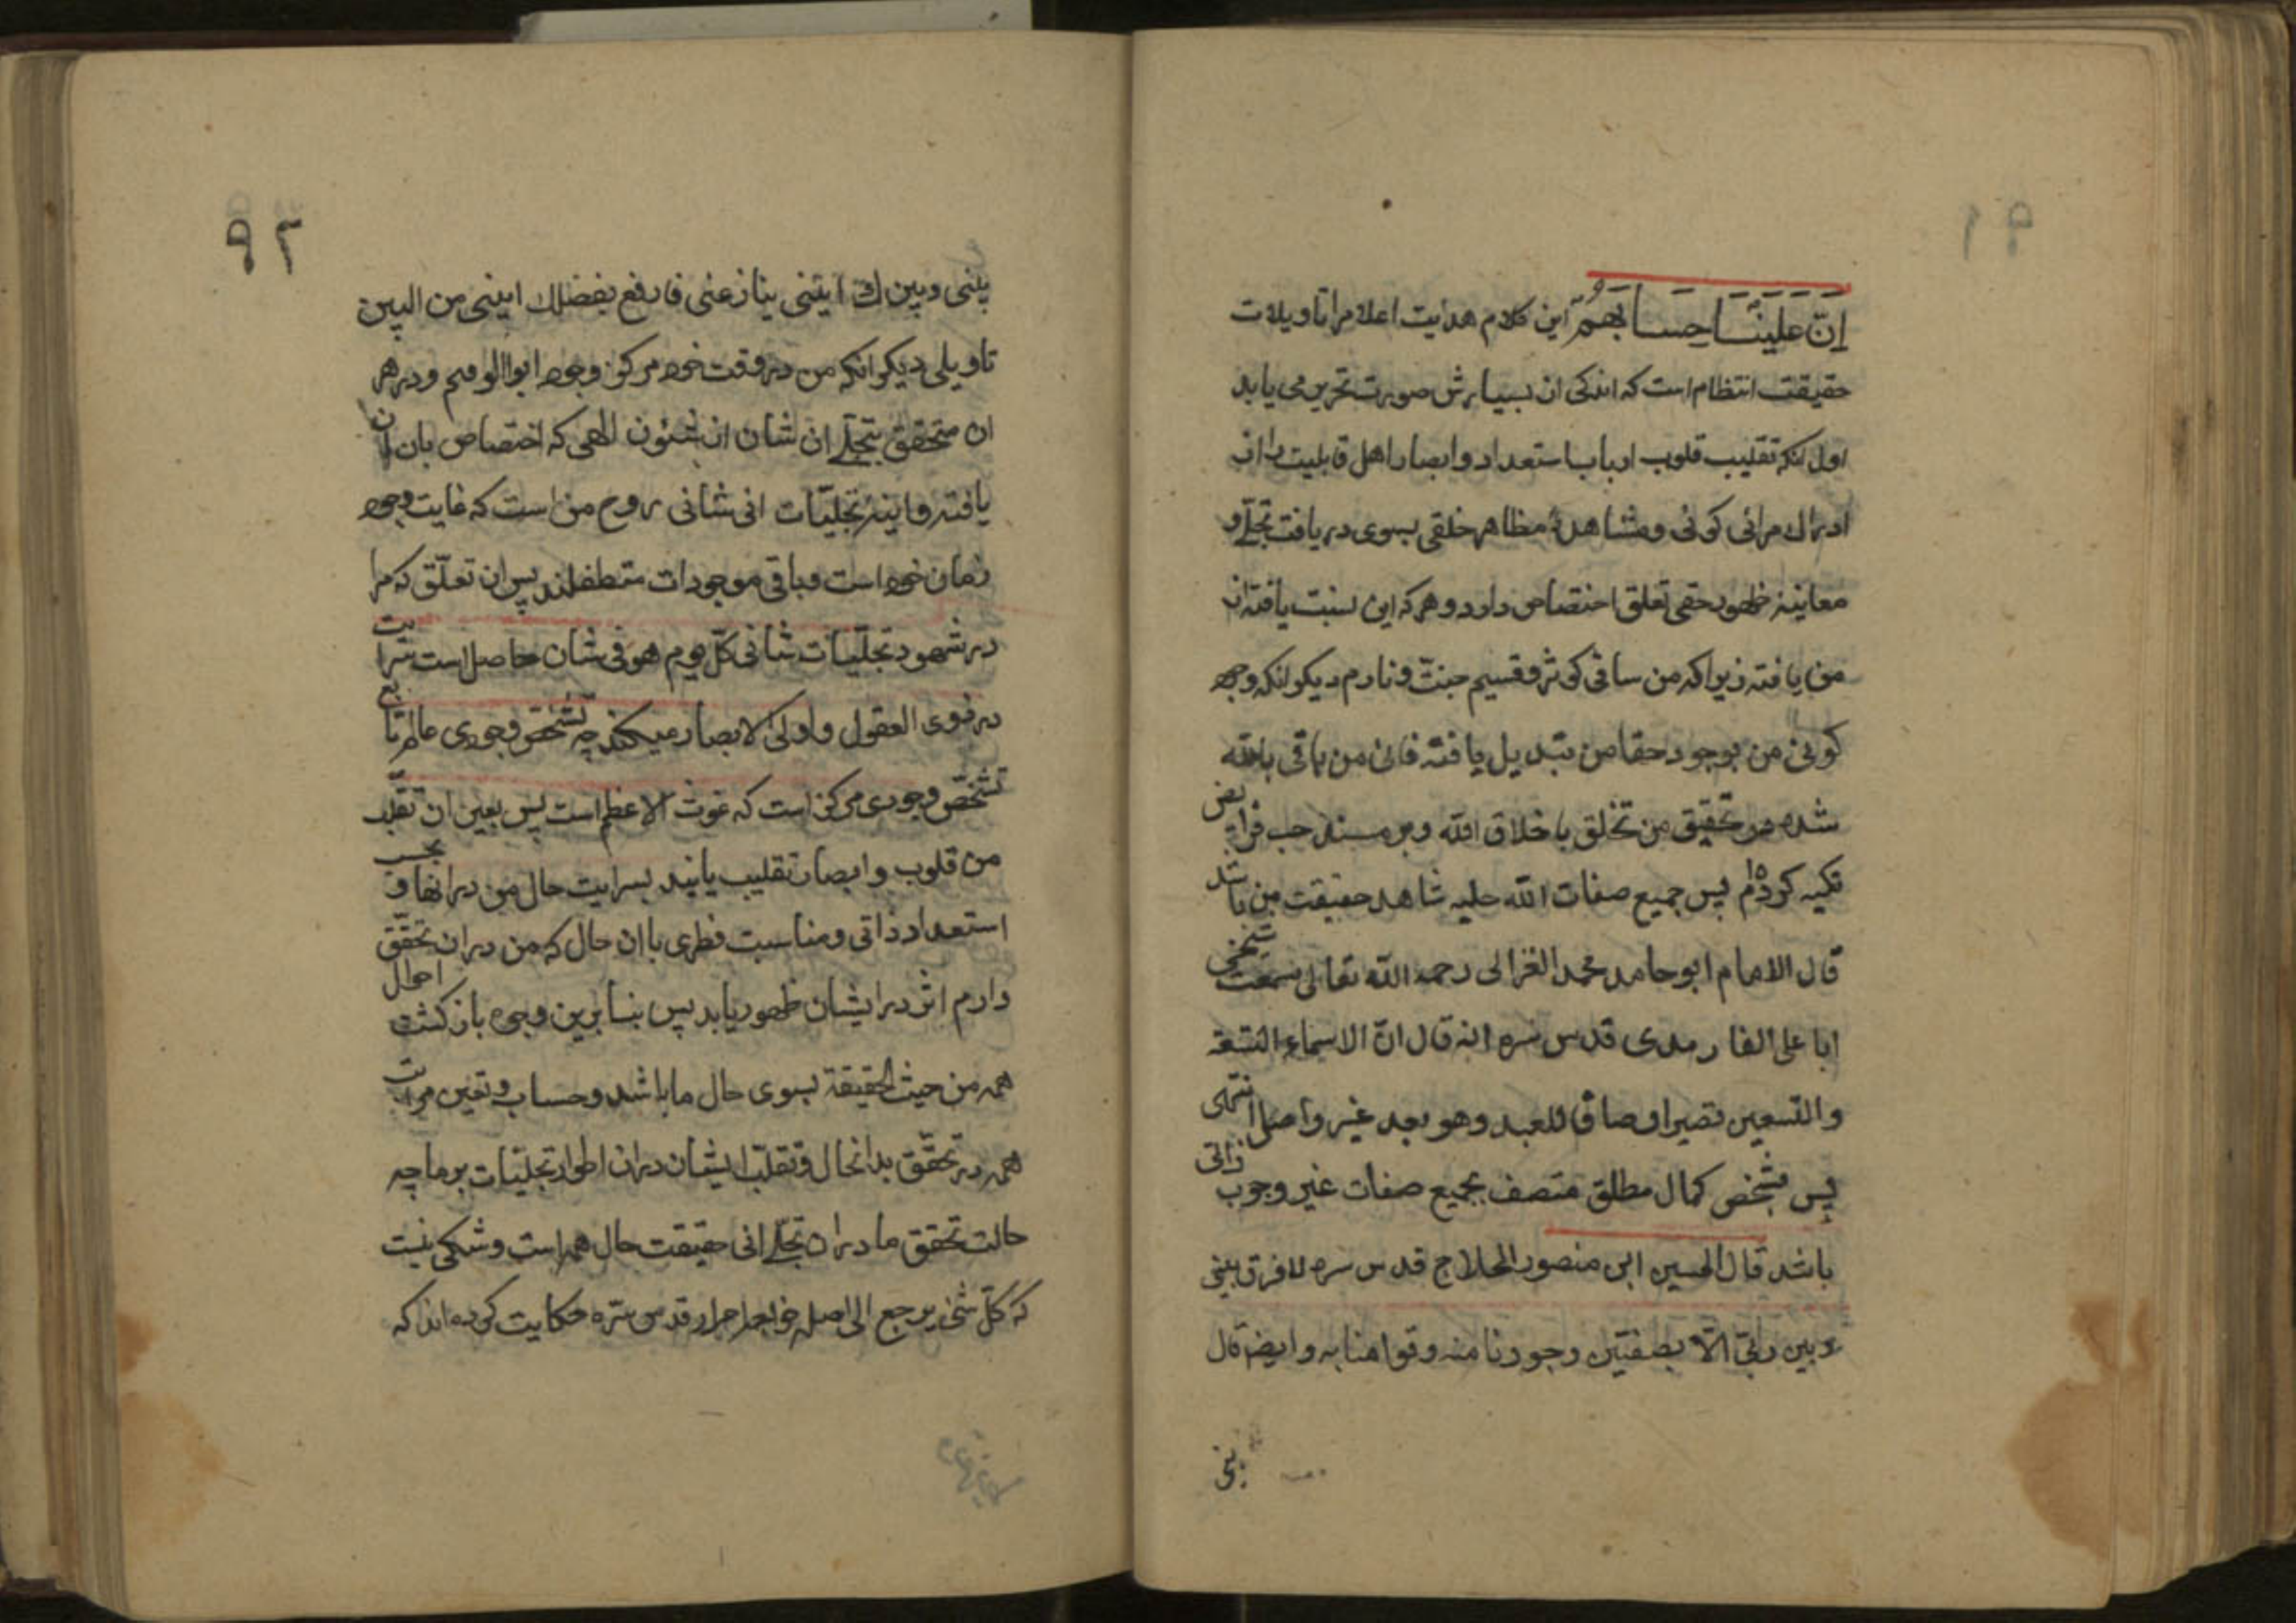 ۹۱
اِنّ علینَا حِسابَهُمّ این کلام هدایت اعلام را تاویلات
حقیقت انتظام است که اندکی از بسیارش صورت تحریر می یابد
اول آنکه تقلیب قلوب ارباب استعداد و ابصار اهل قابلیت را از
ادراک مرائی کونی و مشاهدهٔ مظاهر خلقی بسوی دریافت تجلّے و
معاینهٔ ظهور حقی تعلق اختصاص دارد و هر که این نسبت یافته از
من یافته زیرا که من ساقی کوثر و قسیم جنّت و نارم دیکر انکه وجود
کونی من بوجود حقا من تبدیل یافته فانی من باقی بالله
شده در تحقیق من تخلق باخلاق الله و بر مسند حب فرایض
تکیه کرده‌ام پس جمیع صفات الله حلیهٔ شاهد حقیقت من باشد
قال الامام ابو حامد محمد الغزالی رحمه الله تعالی سمعت شیخی
ابا علی الفارمدی قدس سره انه قال انّ الاسماء التسعة
والتسعین تصیر اوصافا للعبد وهو بعد غیر واصل انتهی
پس شخص کمال مطلق متصف بجمیع صفات غیر وجوب ذاتی
باشد قال الحسین ابن منصور الحلاج قدس سره لا فرق بینی
و بین ربّی الّا بصفتین وجودنا منه وقوامنا به وایضا قال
بینی
۹۲
بینی و بینک اینّی ینازعنی فارفع بفضلک اینی من البین
تاویلی دیکر انکه من در وقت خود مرکز وجود ابوالوقتم و در هر
ان متحقق بتجلّے ان شان از شئون الهی که اختصاص بان ان
یافته و اینهٔ تجلیّات انی شانی روح من است که غایت وجود
زمان خود است و باقی موجودات متطفلند پس ان تعلّق که مرا
در شهود تجلّیات شانی کلّ یوم هو فی شان حاصل است سرایت
در ذوی العقول و اولی الابصار میکند چه تشخّص وجودی عالم تابع
تشخّص وجودی مرکز است که غوث الاعظم است پس بعین ان تقلّب
من قلوب و ابصار تقلیب یابند بسرایت حال من در انها و بحسب
استعداد ذاتی و مناسبت فطری با ان حال که من در ان تحقّق
دارم اثر در ایشان ظهور یابد پس بنا برین وجوه بازکشت احوال
همه من حیث الحقیقة بسوی حال ما باشد و حساب و تعین مراتب
همه در تحقّق بدانحال و تقلّب ایشان در ان اطوار تجلیّات بر ما چه
حالت تحقق ما در ان تجلّے انی حقیقت حال همه است و شکی نیست
که کلّ شئ یرجع الی اصله خواجه احرار قدس سرّه حکایت کرده‌اند که